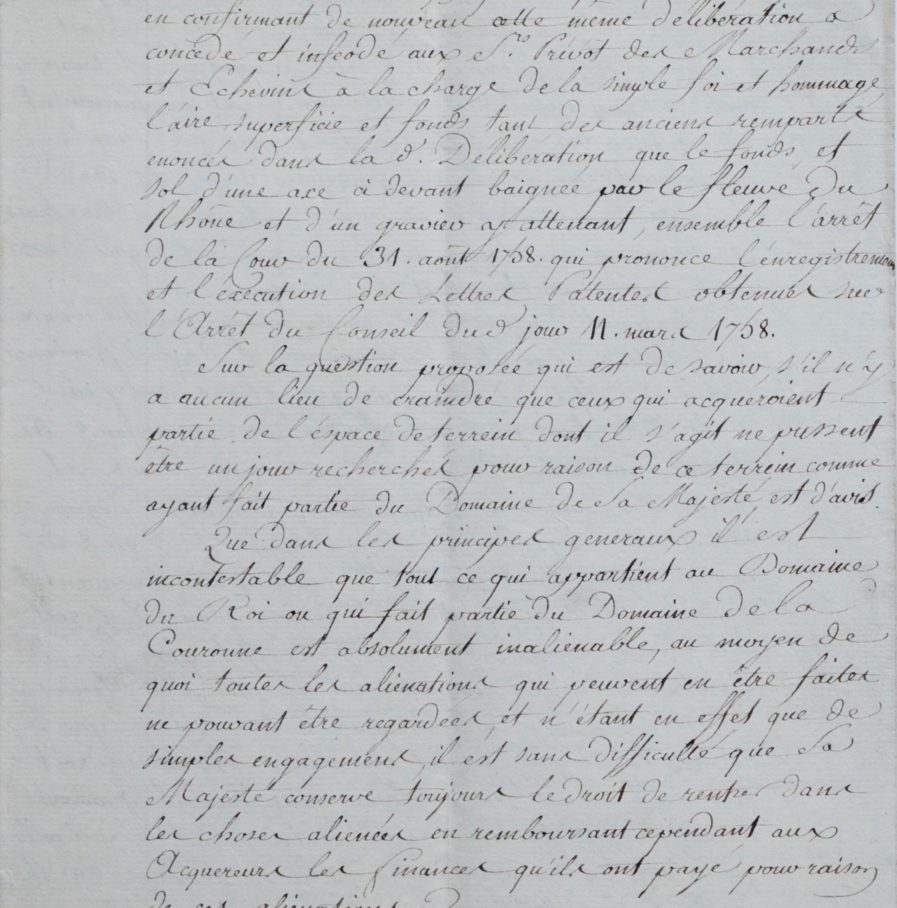 en confirmant de nouveau cette même déliberation a
concédé et inféodé aux Srs. Prévot des Marchands
et Echevins à la charge de la simple foi et hommage,
l'aire, superficie et fonds tant des anciens remparts
enoncés dans la d. Déliberation que le fonds, et
sol d'une axe ci devant baignée par le fleuve du
Rhône et d'un gravier y attenant, ensemble l'arrêt
de la Cour du 31. août 1758. qui prononce l'enregistrement
et l'execution des Lettres Patentes obtenues sur
l'Arrêt du Conseil du d. jour 11. mars 1758.
Sur la question proposée qui est de savoir, s'il n'y
a aucun lieu de craindre que ceux qui acqueroient
partie de l'éspace de terrein dont il s'agit ne pussent
être un jour recherchés pour raison de ce terrein comme
ayant fait partie du Domaine de Sa Majesté, est d'avis.
Que dans les principes generaux il est
incontestable que tout ce qui appartient au Domaine
du Roi ou qui fait partie du Domaine de la
Couronne est absolument inalienable, au moyen de
quoi toutes les alienations qui peuvent en être faites
ne pouvant être regardées, et n'étant en effet que de
simples engagemens, il est sans difficulté que Sa
Majesté conserve toujours le droit de rentrer dans
les choses alienées en remboursant cependant aux
Acquereurs les finances qu'ils ont payé pour raison
de ces alienations